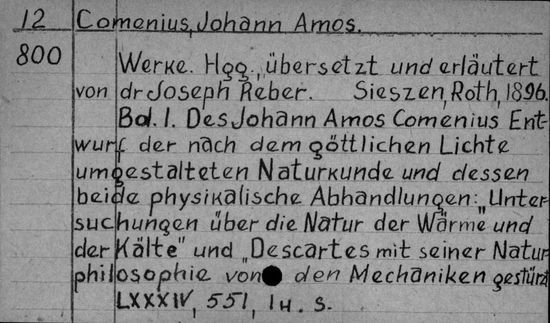 12 Comenius, Johann Amos.
800 Werke. Hgg., übersetzt und erläutert
von dr Joseph Reber. Sieszen, Roth, 1896.
Bd. 1. Des Johann Amos Comenius Ent-
wurf der nach dem göttlichen Lichte
umgestalteten Naturkunde und dessen
beide physikalische Abhandlungen: "Unter-
suchungen über die Natur der Wärme und
der Kälte" und „Descartes mit seiner Natur-
philosophie von den Mechaniken gestürzt
LXXXIV, 551, 1 H. S.